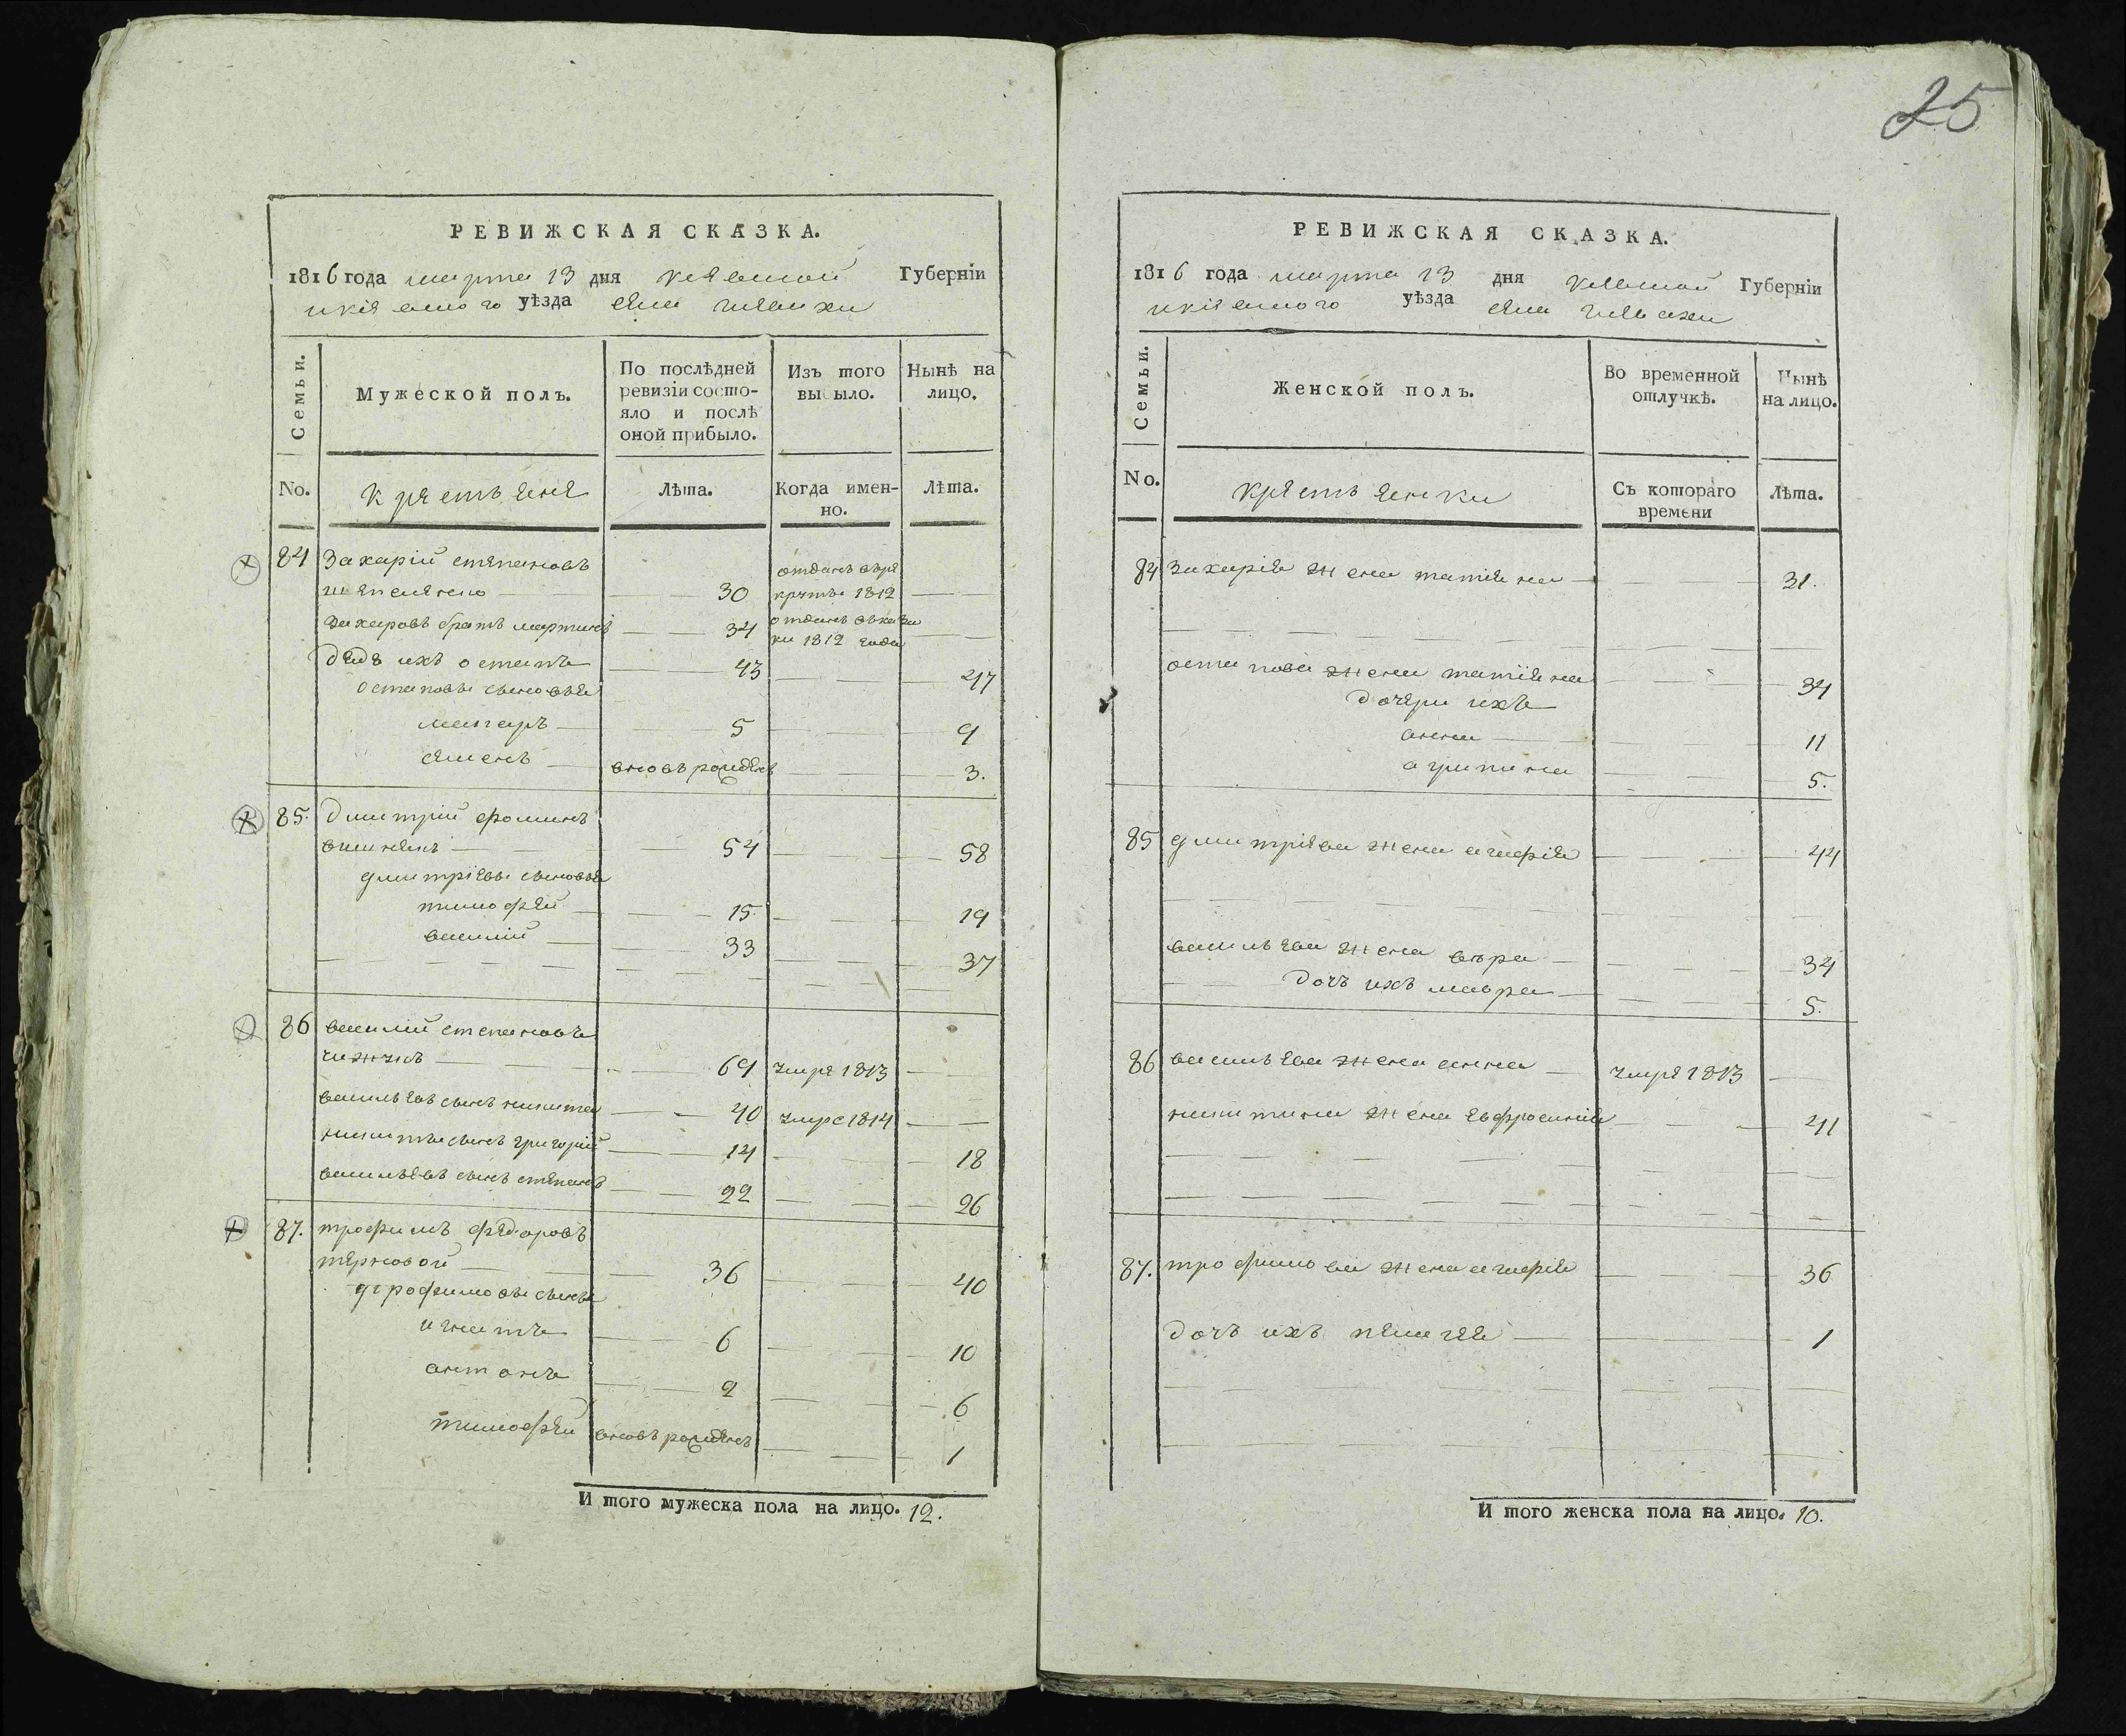 25
РЕВИЖСКАЯ СКАЗКА.
1816 года марта 13 дня киевской Губерніи
икіевского уѣзда села
Семьи.
Мужеской полъ.
По послѣдней ревизіи состо-
яло и послѣ
оной прибыло.
Изъ того
выбыло.
Нынѣ на
лицо.
No.
крестьяне
Лѣта.
Когда имен-
но.
Лѣта.
84 Захарій степановъ
30 отданъ врекруты 1812
Захаровъ братъ мартинъ 34 отданъ 1812 года
дядя ихъ остапъ 43 47
остаповы сыновья
макаръ 5 9
семенъ вновь рожденъ 3.
85. дмитрій фоминъ
54 58
дмитріевы сыновья
тимофей 15 19
василій 33 37
86 василій степановъ
чижикъ 69 умре 1813
васильевъ сынъ никита 40 умре 1814
никиты сынъ григорій 14 18
васильевъ сынъ степанъ 22 26
87. трофимъ федоровъ
терновой 36 40
трофимовы сыны
игнатъ 6 10
антонъ 2 6
тимофей вновь рожденъ 1
И того мужеска пола на лицо. 12.
РЕВИЖСКАЯ СКАЗКА.
1816 года марта 13 дня киевской Губерніи
икіевского уѣзда села
Семьи.
Женской полъ.
Во временной
отлучкѣ.
Нынѣ
на лицо.
No.
крестьянки
Съ котораго
времени
Лѣта.
84 Захарія жена татіяна 31.
остапова жена татіяна 34
дочери ихъ
анна 11
агрипина 5.
85 дмитріева жена агафія 44
васильева жена вѣра 34
дочь ихъ мавра 5.
86 васильева жена анна умре 1813
никитина жена евфросинія 41
87. трофимова жена агафія 36
дочь ихъ пелагея 1
И того женска пола на лицо. 10.